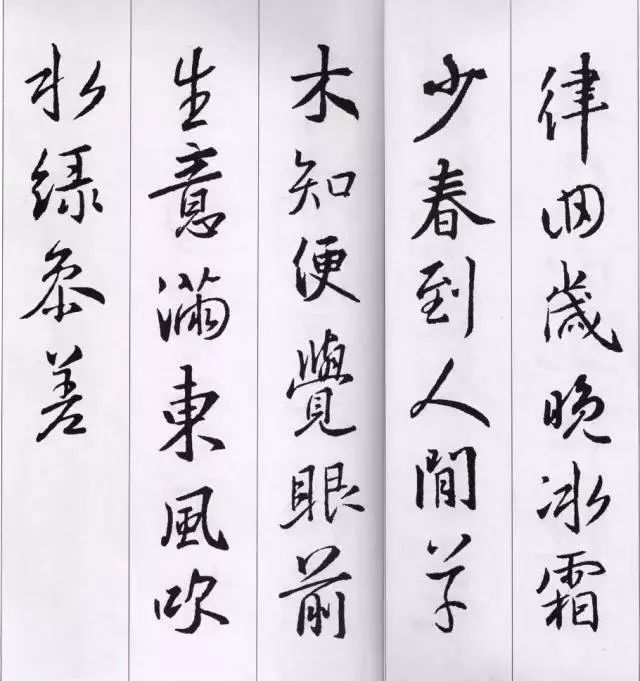 律回歲晚冰霜
少春到人間草
木知便覺眼前
生意滿東風吹
水緑參差